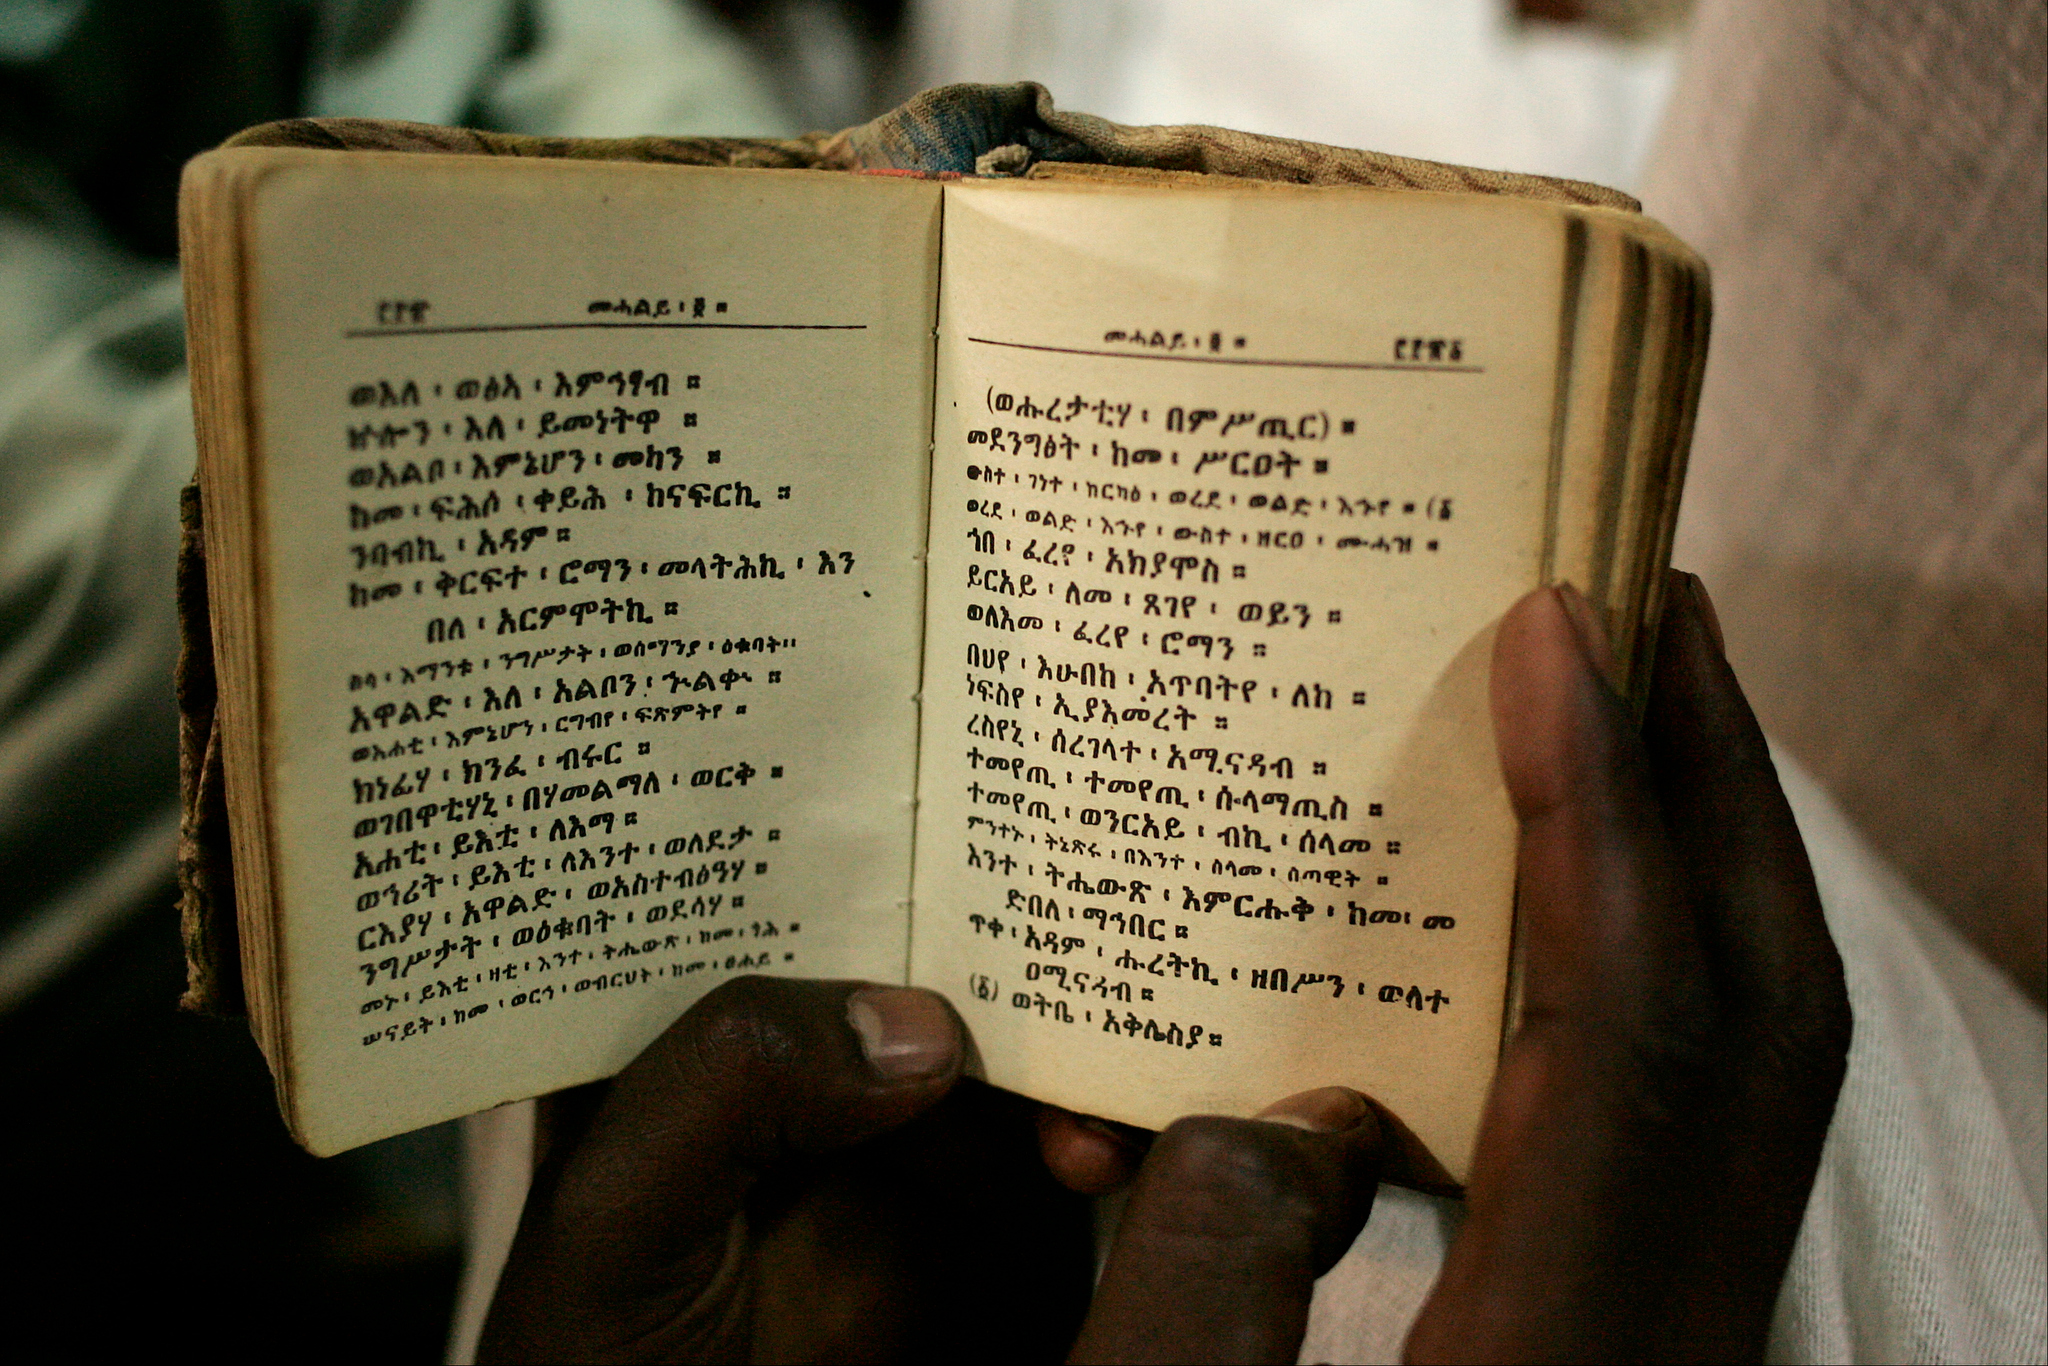 መሓልይ ፡ ፬ ።
ወእለ ፡ ወፅአ ፡ እምኀፃብ ።
ኵሎን ፡ እለ ፡ ይመነትዋ ።
ወአልቦ ፡ እምኔሆን ፡ መካን ።
ከመ ፡ ፍሕሶ ፡ ቀይሕ ፡ ከናፍርኪ ።
ንባብኪ ፡ አዳም ።
ከመ ፡ ቅርፍተ ፡ ሮማን ፡ መላትሕኪ ፡ እን
በለ ፡ አርምሞትኪ ።
ስሳ ፡ እማንቱ ፡ ንግሥታት ፡ ወሰማንያ ፡ ዕቁባት።
አዋልድ ፡ እለ ፡ አልቦን ፡ ኍልቍ ።
ወአሐቲ ፡ እምኔሆን ፡ ርግብየ ፡ ፍጽምትየ ።
ክነፊሃ ፡ ክንፈ ፡ ብሩር ።
ወገበዋቲሃኒ ፡ በሃመልማለ ፡ ወርቅ ።
አሐቲ ፡ ይእቲ ፡ ለእማ ።
ወኅሪት ፡ ይእቲ ፡ ለእንተ ፡ ወለደታ ።
ርእያሃ ፡ አዋልድ ፡ ወአስተብፅዓሃ ።
ንግሥታት ፡ ወዕቁባት ፡ ወደሳሃ ።
መኑ ፡ ይእቲ ፡ ዛቲ ፡ እንተ ፡ ትሔውጽ ፡ ከመ ፡ ጎሕ ።
ሠናይት ፡ ከመ ፡ ወርኅ ፡ ወብርህት ፡ ከመ ፡ ፀሐይ ።
መሓልይ ፡ ፬ ።
(ወሑረታቲሃ ፡ በምሥጢር) ።
መደንግፅት ፡ ከመ ፡ ሥርዐት ።
ውስተ ፡ ገነተ ፡ ከርካዕ ፡ ወረደ ፡ ወልድ ፡ እኁየ ። (፩
ወረደ ፡ ወልድ ፡ እኁየ ፡ ውስተ ፡ ዘርዐ ፡ ሙሓዝ ።
ኀበ ፡ ፈረየ ፡ አክያሞስ ።
ይርአይ ፡ ለመ ፡ ጸገየ ፡ ወይን ።
ወለእመ ፡ ፈረየ ፡ ሮማን ።
በህየ ፡ እሁበከ ፡ አጥባትየ ፡ ለከ ።
ነፍስየ ፡ ኢያእመረት ።
ረስየኒ ፡ ሰረገላተ ፡ አሚናዳብ ።
ተመየጢ ፡ ተመየጢ ፡ ሱላማጢስ ።
ተመየጢ ፡ ወንርአይ ፡ ብኪ ፡ ሰላመ ።
ምንተኑ ፡ ትኔጽሩ ፡ በእንተ ፡ ሰላመ ፡ ሰጣዊት ።
እንተ ፡ ትሔውጽ ፡ እምርሑቅ ፡ ከመ፡ መ
ድበለ ፡ ማኅበር ።
ጥቀ ፡ አዳም ፡ ሑረትኪ ፡ ዘበሥን ፡ ወለተ
ዐሚናዳብ ።
(፩) ወትቤ ፡ አቅሌስያ ።